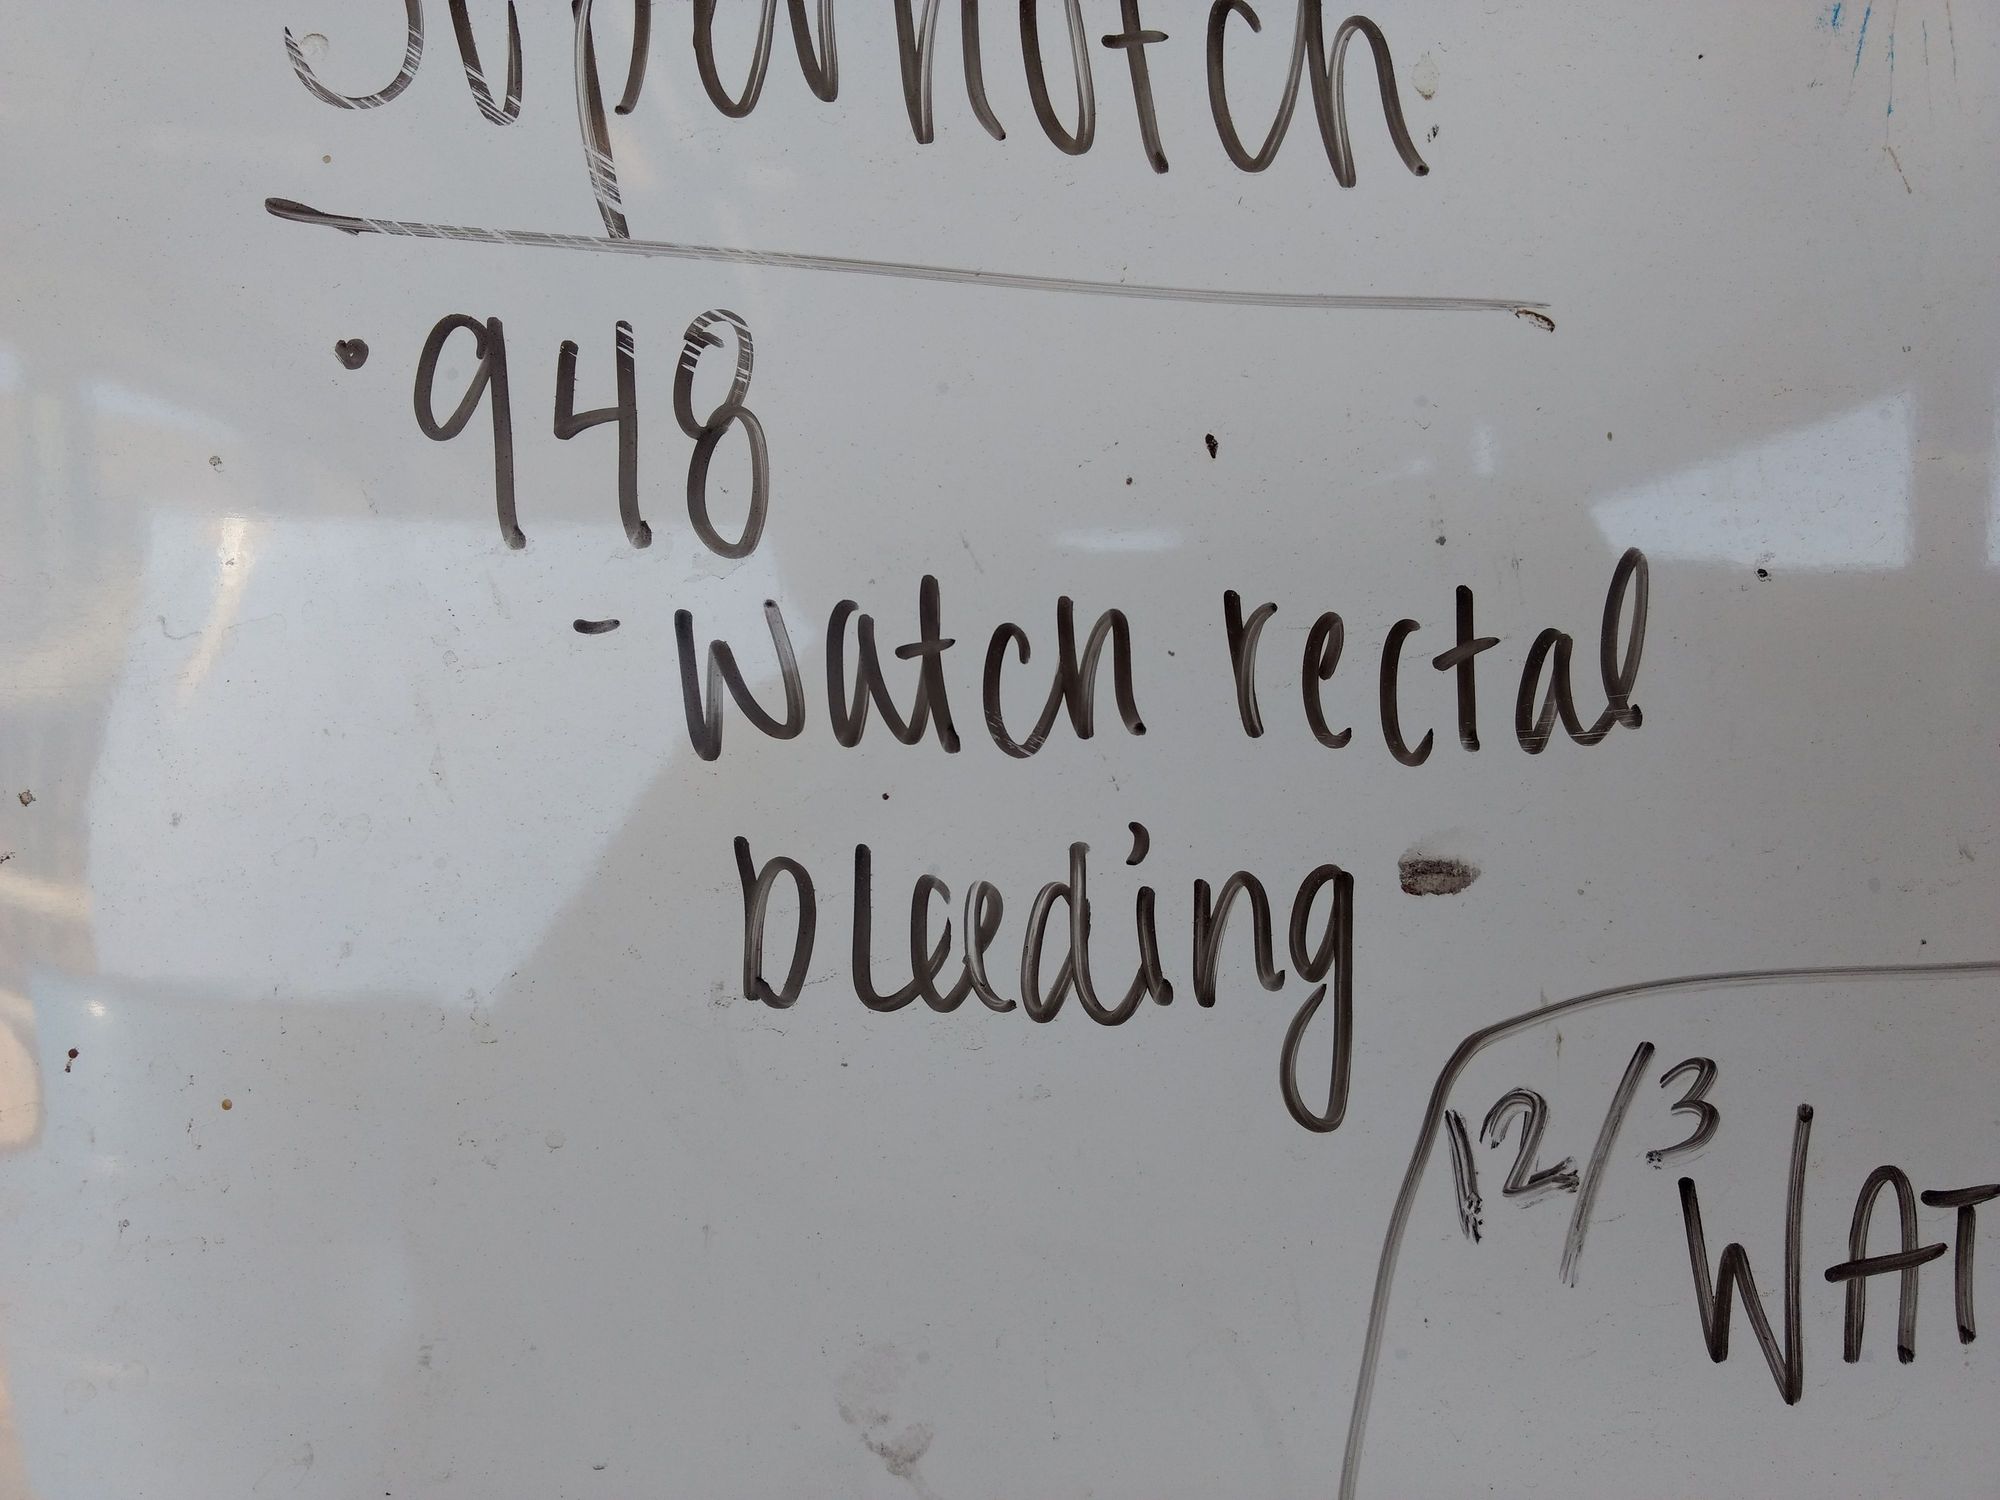 Supernotch
• 948
- watch rectal
bleeding
12/3
WAT